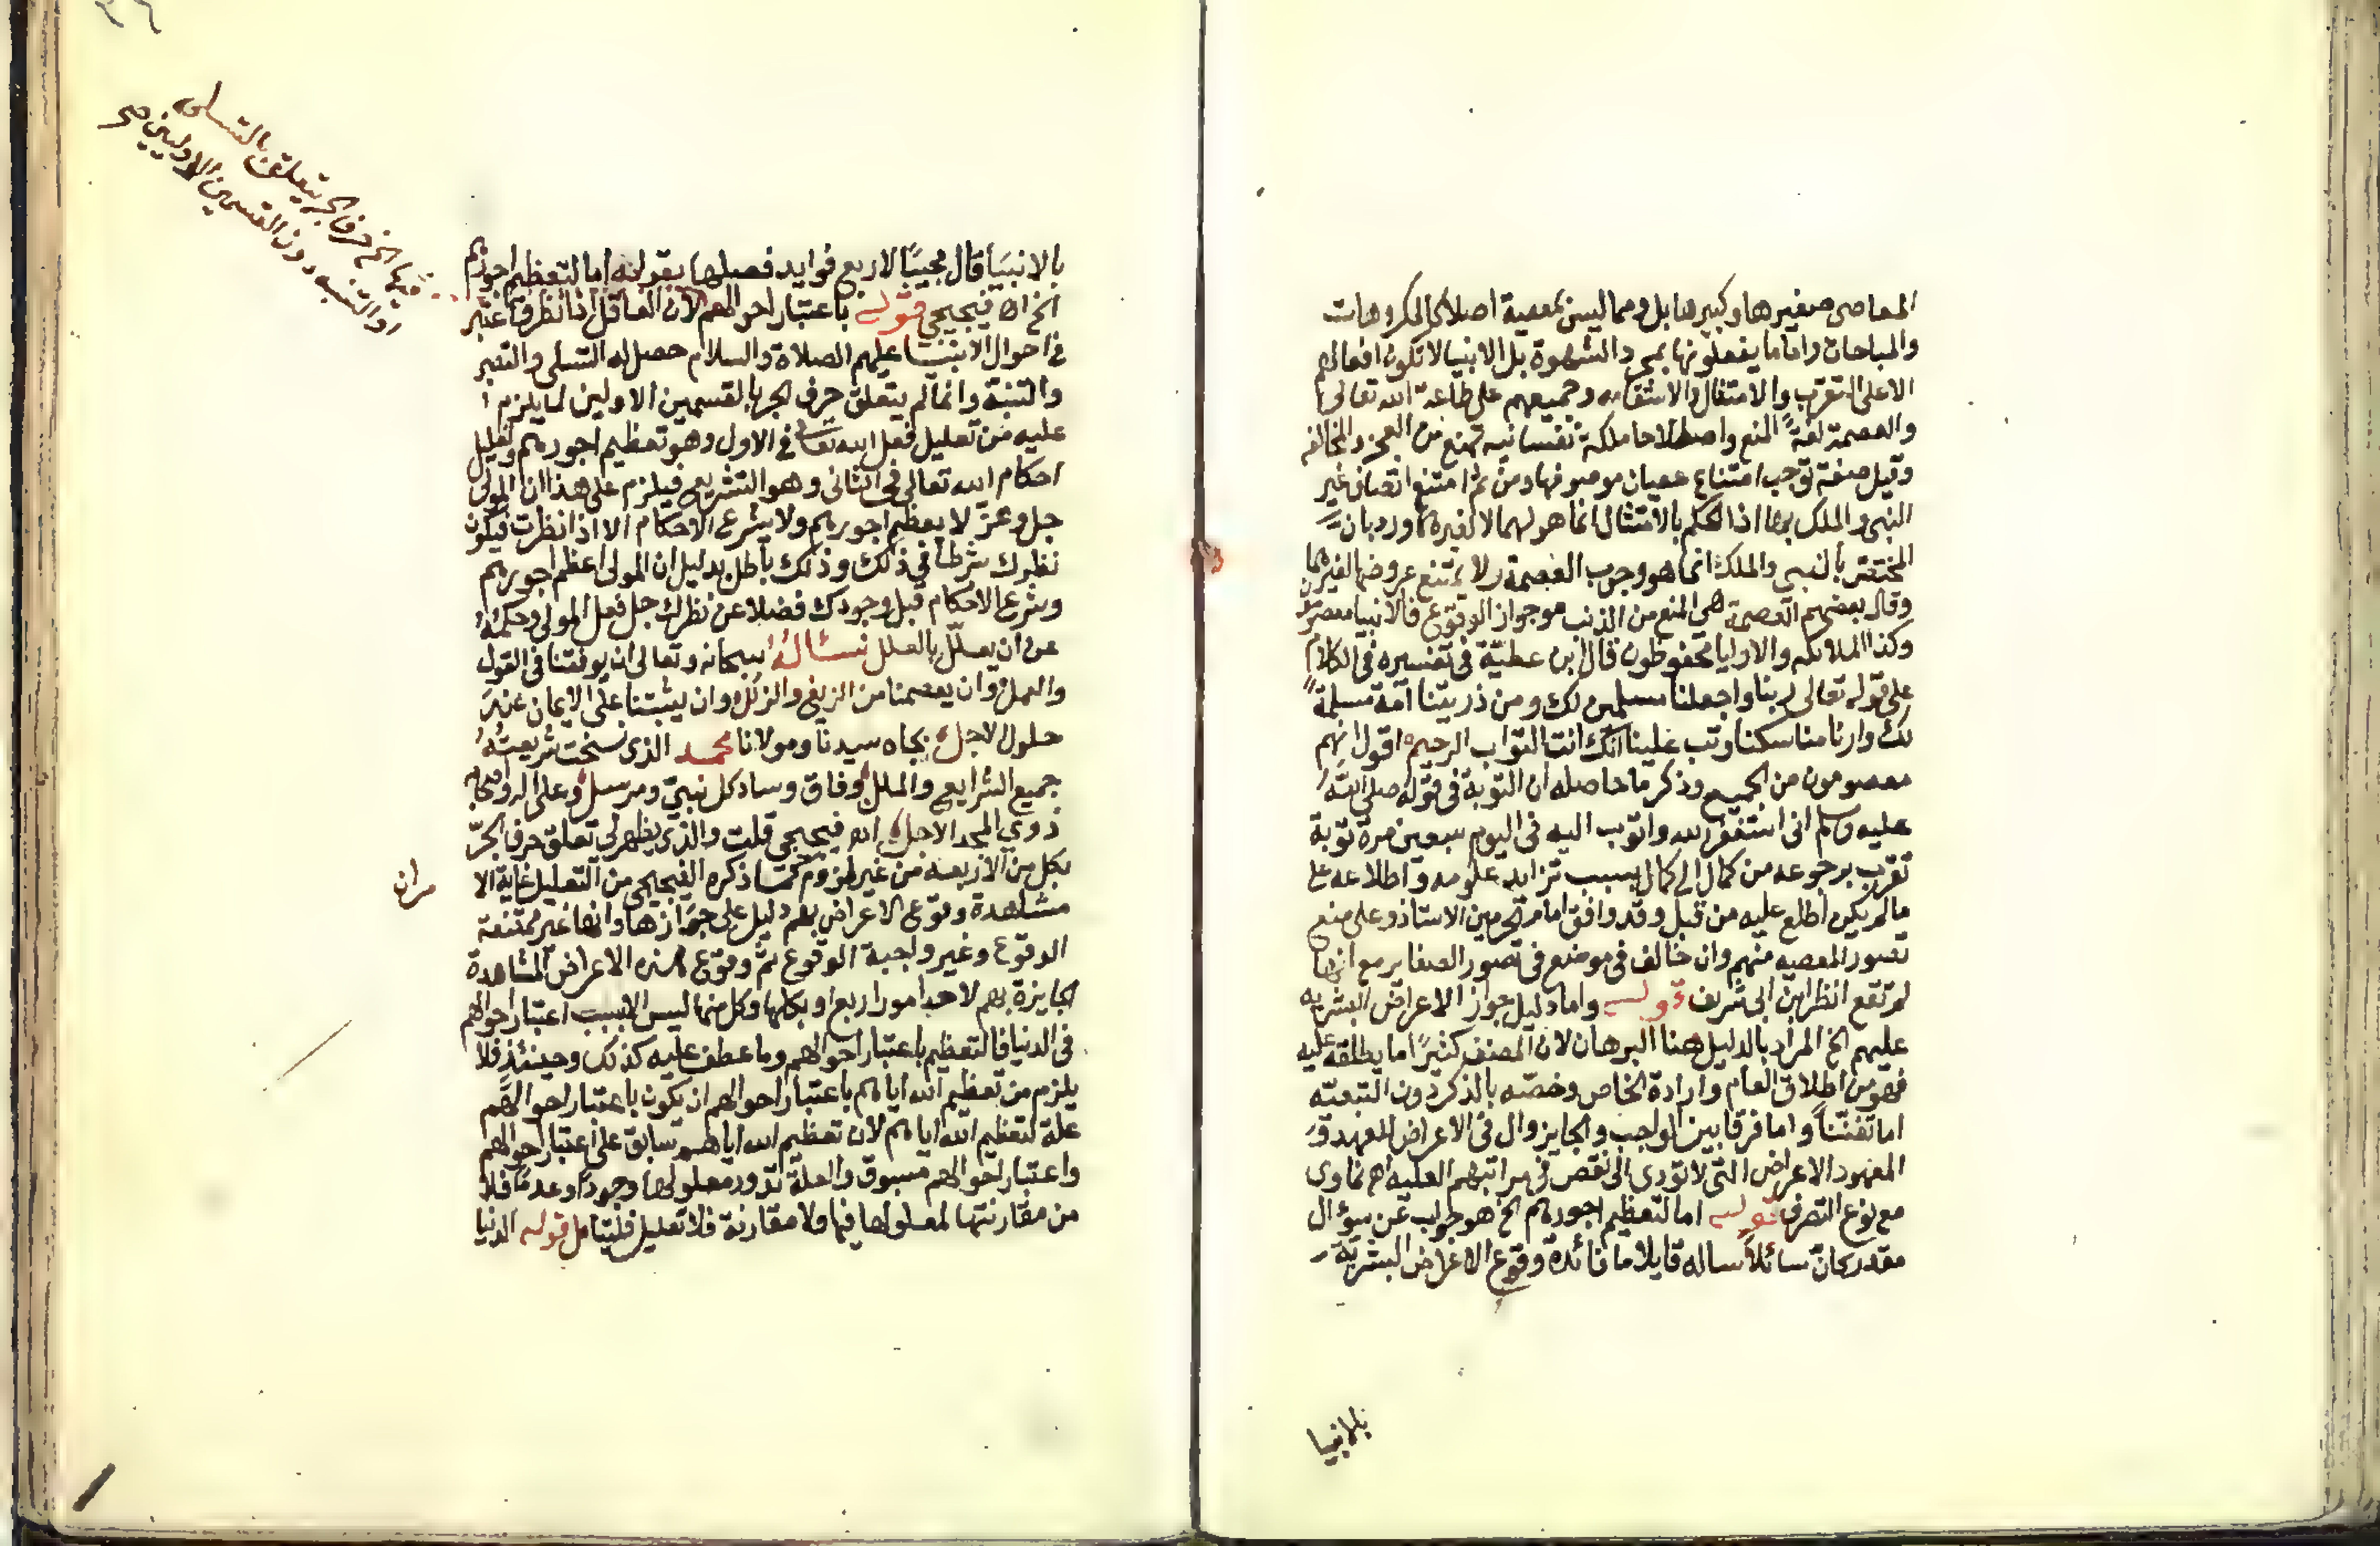 المعاصى صغيرها وكبيرها بل ومما ليس بمعصية اصلا كالمكروهات
والمباحات واما ما يفعلونها بمجرد الشهوة بل الانبيا لا تكون افعالهم
الا على التقرب والامتثال وجميعهم على طاعة الله تعالى
والعصمة لغة المنع واصطلاحا ملكة نفسانيه تمنع من الفجور والمخالفه
وقيل صفة توجب امتناع عصيان موصوفها ومن ثم امتنع اتصاف غير
النبى والملك بها اذا الحكم بالامتثال انما هو لهما لا لغيرهما ورد بان
المختص بالنبى والملك انما هو وجوب العصمة ولا يمتنع عروضها لغيرهما
وقال بعضهم العصمة هى المنع من الذنب مع جواز الوقوع فالانبيا معصومون
وكذا الملائكه والاوليا محفوظون قال ابن عطيّة فى تفسيره فى الكلام
على قوله تعالى ربنا واجعلنا مسلمين لك ومن ذريتنا امة مسلمة
لك وارنا مناسكنا وتب علينا انك انت التواب الرحيم اقول انهم
معصومون من الجميع وذكر ما حاصله ان التوبة فى قوله صلى الله
عليه وسلم انى استغفر الله واتوب اليه فى اليوم سبعين مرة توبة
تقرب برجوعه من كمال الى كمال بسبب تزايد علومه واطلاعه على
ما لم يكن اطلع عليه من قبل وقد وافق امام الحرمين الاستاذ وعلى منع
تصور المعصيه منهم وان خالف فى موضع فى تصور الصغاير مع انها
لم تقع انظر ابن ابى شريف قوله واما دليل جواز الاعراض البشريه
عليهم الخ المراد بالدليل هنا البرهان لان المصنف كثيرًا ما يطلقه عليه
فهو من اطلاق العام وارادة الخاص وخصّه بالذكر دون
اما تفننًا واما فرقا بين الواجب والجايز وال فى الاعراض للعهد
المعهود الاعراض التى لا تودى الى نقص فى مراتبهم العليه اهـ
مع نوع التصرف قوله اما لتعظيم اجورهم الخ هو جواب عن سؤال
مقدر كان سائلاً ساله قايلا ما فائدة وقوع الاعراض البشرية
بالانبيا
بالانبيا قال مجيبًا لاربع فوايد فصلها بقوله اما لتعظيم اجورهم
الخ اهـ فيجيجي قوله باعتبار احوالهم لان العاقل اذا نظر واعتبر
فى احوال الانبيا عليهم الصلاة والسلام حصل له التسلى والتصبر
والتنبه وانما لم يتعلق حرف الجر بالقسمين الاولين لما يلزم
عليه من تعليل فعل الله تعالى فى الاول وهو تعظيم اجورهم وتعليل
احكام الله تعالى فى الثانى وهو التشريع فيلزم على هذا ان المولى
جل وعز لا يعظم اجورهم ولا يشرع الاحكام الا اذا نظرت فيكون
نظرك شرطا فى ذلك وذلك باطل بدليل ان المولى اعظم اجورهم
وشرع الاحكام قبل وجودك فضلا عن نظرك جل فعل المولى وحكمه
عن ان يعلّل بالعلل نسئاله سبحانه وتعالى ان يوفقنا فى القول
والعمل وان يعصمنا من الزيغ والزلل وان يثبتنا على الايمان عند
حلول الاجل بجاه سيدنا ومولانا محمد الذى نسخت شريعته
جميع الشرايع والملل وفاق وساد كل نبىّ ومرسل وعلى اله وصحابه
ذوي المجد الاجل اهـ فيجيجي قلت والذى يظهر لى تعلق حرف الجرّ
بكل من الاربعه من غير لزوم ما ذكره الفيجيجي من التعليل غاية الا
مران
مشاهدة وقوع الاعراض بهم دليل على جوازها وانها غير ممتنعة
الوقوع وغير واجبة الوقوع ثم وقوع هذه الاعراض المشاهدة
الجايزة بهم لاحد امور اربع او بكلها وكل منها ليس الا بسبب اعتبار احوالهم
فى الدنيا فالتعظيم باعتبار احوالهم وما عطف عليه كذلك وحينئذ فلا
يلزم من تعظيم الله اياهم باعتبار احوالهم ان يكون باعتبار احوالهم
علة لتعظيم الله اياهم لان تعظيم الله اياهم سابق على اعتبار احوالهم
واعتبار احوالهم مسبوق والعلة تدور معلولها وجودًا وعدمًا فلا
من مقارنتها لمعلولها فيها ولا مقارنة فلا تعليل فليتامل قوله الدنيا
فيها الخ حرف الجر يتعلق بالتسلى
او التنبه دون القسمين الاولين صح